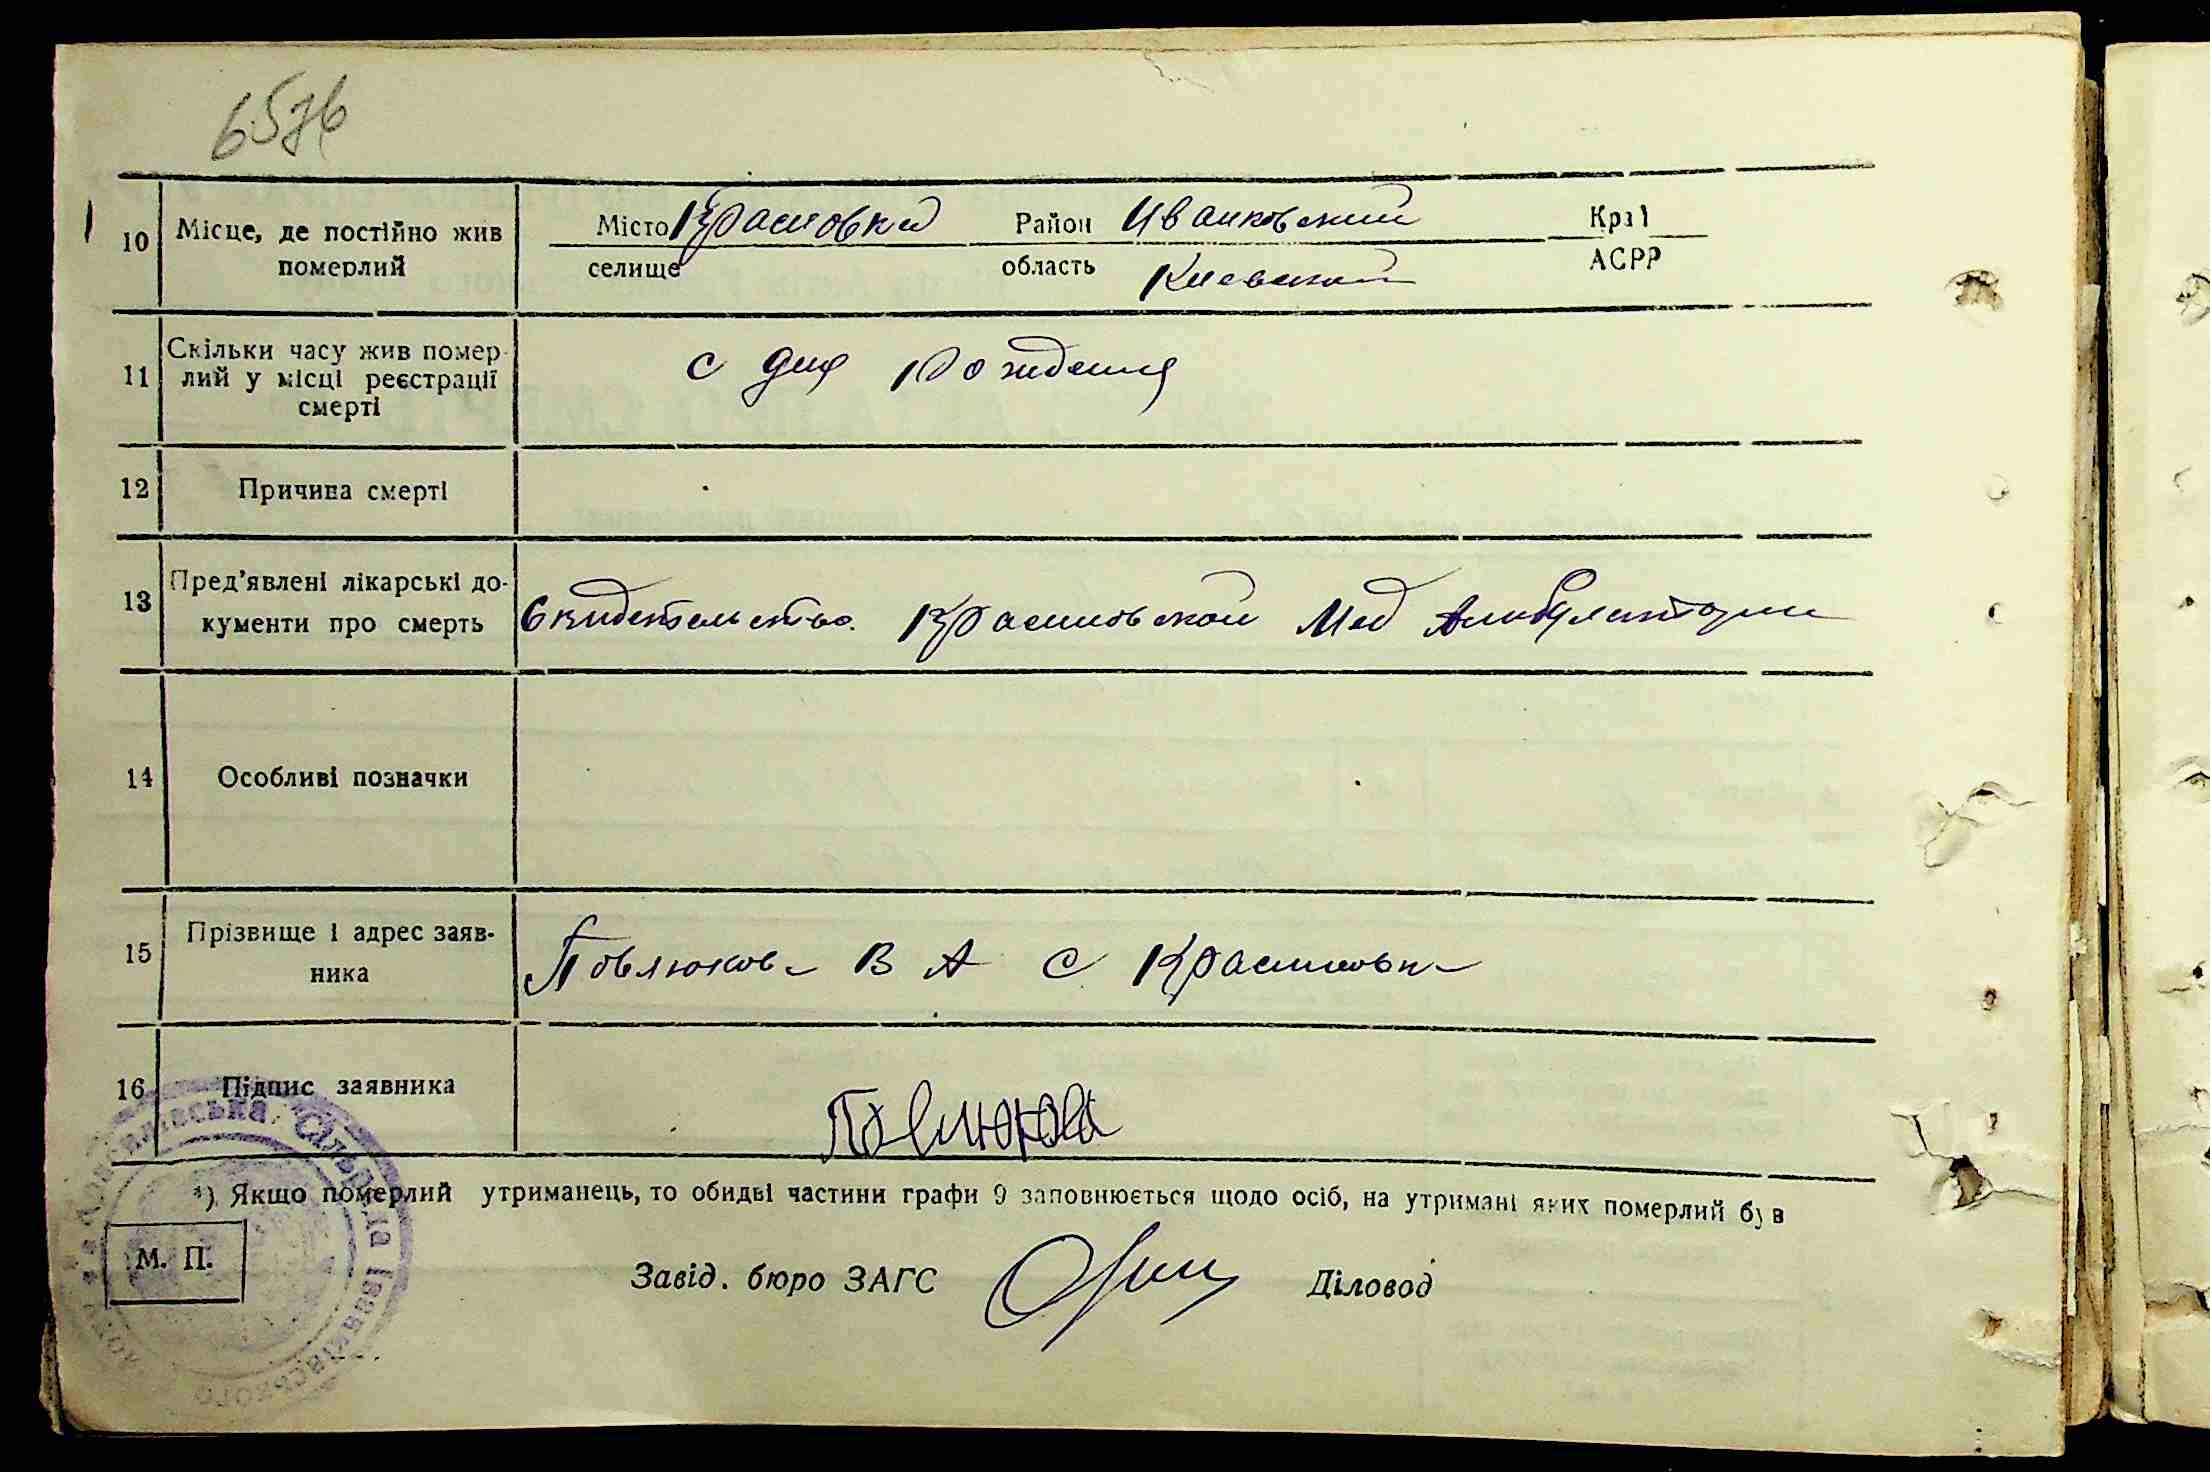 6576
10 Місце, де постійно жив Місто Красиловка Район Иванковский Краї
померлий селище область Киевской АСРР
11 Скільки часу жив помер-
лий у місці реєстрації с дня рождения
смерті
12 Причина смерті
13 Пред'явлені лікарські до-
кументи про смерть Свидетельство Красиловской Мед Амбулатории
14 Особливі позначки
15 Прізвище і адрес заяв-
ника Повлюкова В А с Красиловка
16 Підпис заявника
Повлюкова
*) Якщо померлий утриманець, то обидві частини графи 9 заповнюється щодо осіб, на утримані яких померлий був
М. П.
Завід. бюро ЗАГС Діловод
Сільрада Іванківського